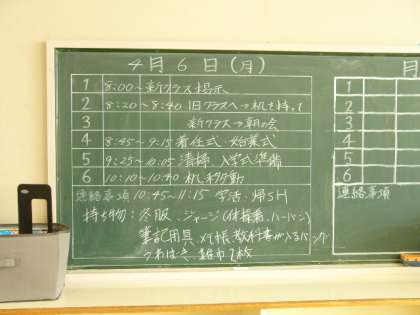 4月6日(月)
1 8:00~新クラス掲示
2 8:20~8:40 旧クラスへ→机を持って
3 新クラス→朝の会
4 8:45~9:15 着任式・始業式
5 9:25~10:05 清掃、入学式準備
6 10:10~10:40 机・移動
連絡事項 10:45~11:15 学活・帰SH
持ち物:冬服、ジャージ(体操着、ハーパン)
筆記用具、メモ帳、教科書が入るバッグ
うわばき、雑巾1枚
月
1
2
3
4
5
6
連絡事項